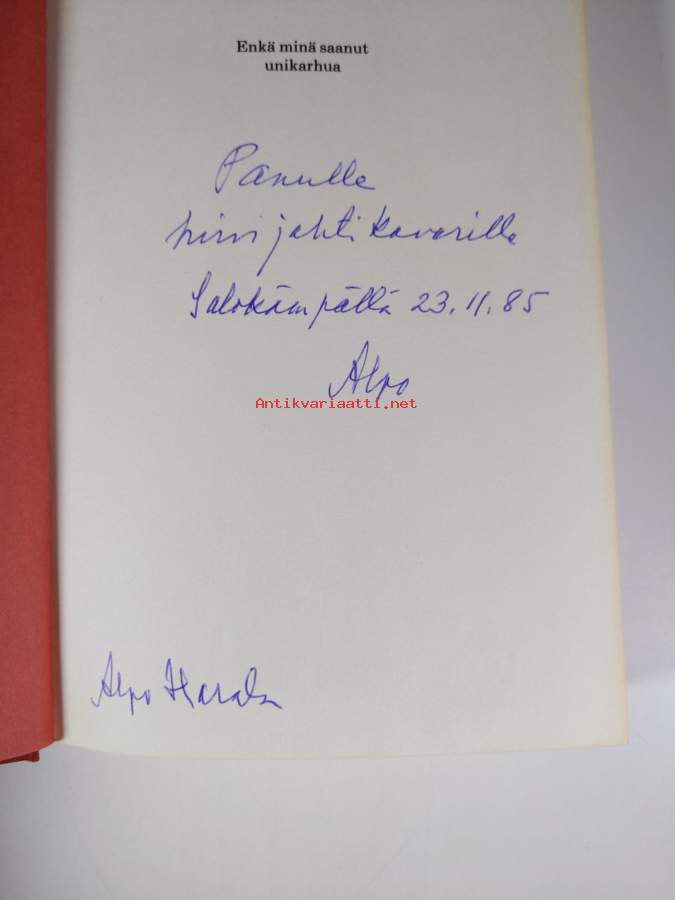 Enkä minä saanut
unikarhua
Panulle
hirvijahtikaverilla
Salokämpällä 23.11.85
Alpo
Antikvariaatti.net
Alpo